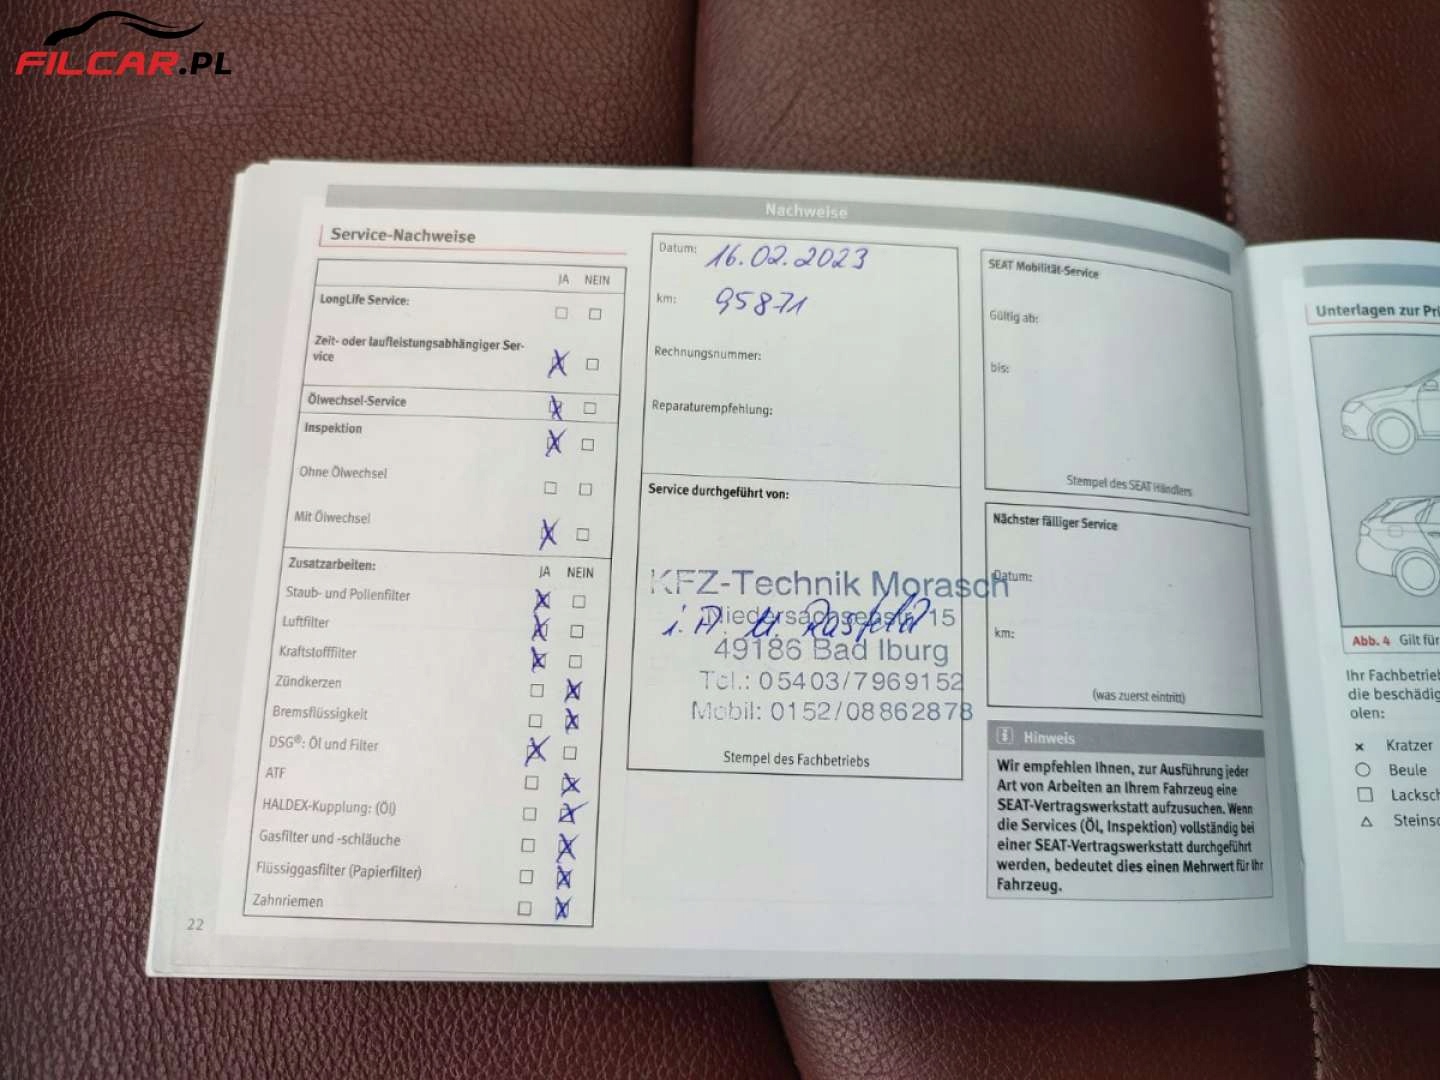 FILCAR.PL
Nachweise
Service-Nachweise
JA NEIN
LongLife Service:
Zeit- oder laufleistungsabhängiger Ser-
vice
Ölwechsel-Service
Inspektion
Ohne Ölwechsel
Mit Ölwechsel
Zusatzarbeiten:
JA NEIN
Staub- und Pollenfilter
Luftfilter
Kraftstofffilter
Zündkerzen
Bremsflüssigkeit
DSG®: Öl und Filter
ATF
HALDEX-Kupplung: (Öl)
Gasfilter und -schläuche
Flüssiggasfilter (Papierfilter)
Zahnriemen
22
Datum: 16.02.2023
km: 95871
Rechnungsnummer:
Reparaturempfehlung:
Service durchgeführt von:
KFZ-Technik Morasch
Niedersachsenstr. 15
i.A.
49186 Bad Iburg
Tel.: 05403/7969152
Mobil: 0152/08862878
Stempel des Fachbetriebs
SEAT Mobilität-Service
Gültig ab:
bis:
Stempel des SEAT Händlers
Nächster fälliger Service
Datum:
km:
(was zuerst eintritt)
Hinweis
Wir empfehlen Ihnen, zur Ausführung jeder
Art von Arbeiten an Ihrem Fahrzeug eine
SEAT-Vertragswerkstatt aufzusuchen. Wenn
die Services (Öl, Inspektion) vollständig bei
einer SEAT-Vertragswerkstatt durchgeführt
werden, bedeutet dies einen Mehrwert für Ihr
Fahrzeug.
Unterlagen zur Pri
Abb. 4 Gilt für
Ihr Fachbetrieb
die beschädig
olen:
Kratzer
Beule
Lacksch
Steinsc